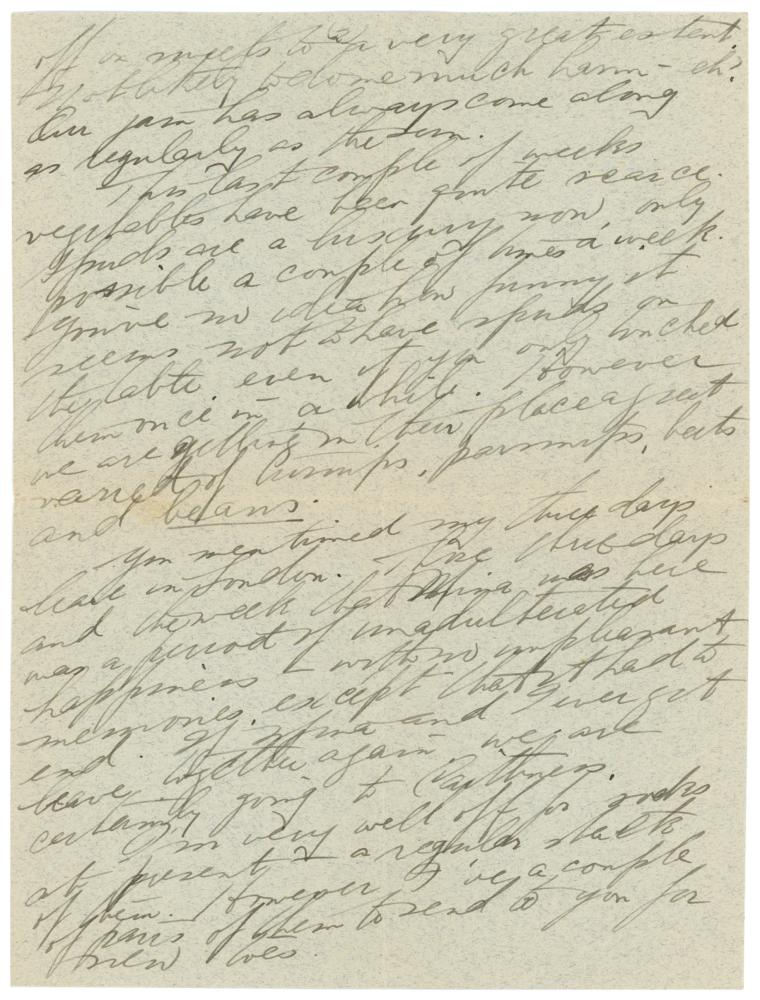 off on sweets to a very great extent.
Not likely to do me much harm - eh?
Our jam has always come along
as regularly as the sun.
This last couple of weeks
vegetables have been quite scarce.
Spuds are a luxury now, only
possible a couple of times a week.
You've no idea how funny it
seems not to have spuds on
the table even if you only touched
them once in a while. However
we are getting in their place a great
variety of turnips, parsnips, beets
and beans.
You mentioned my three days
leave in London. The three days
and the week that Mina was here
was a period of unadulterated
happiness - with no unpleasant
memories, except that it had to
end. If Mina and I ever get
leave together again we are
certainly going to Caithness.
I'm very well off for socks
at present & a regular stack
of them. However I've a couple
of pairs of them to send to you for
new toes.